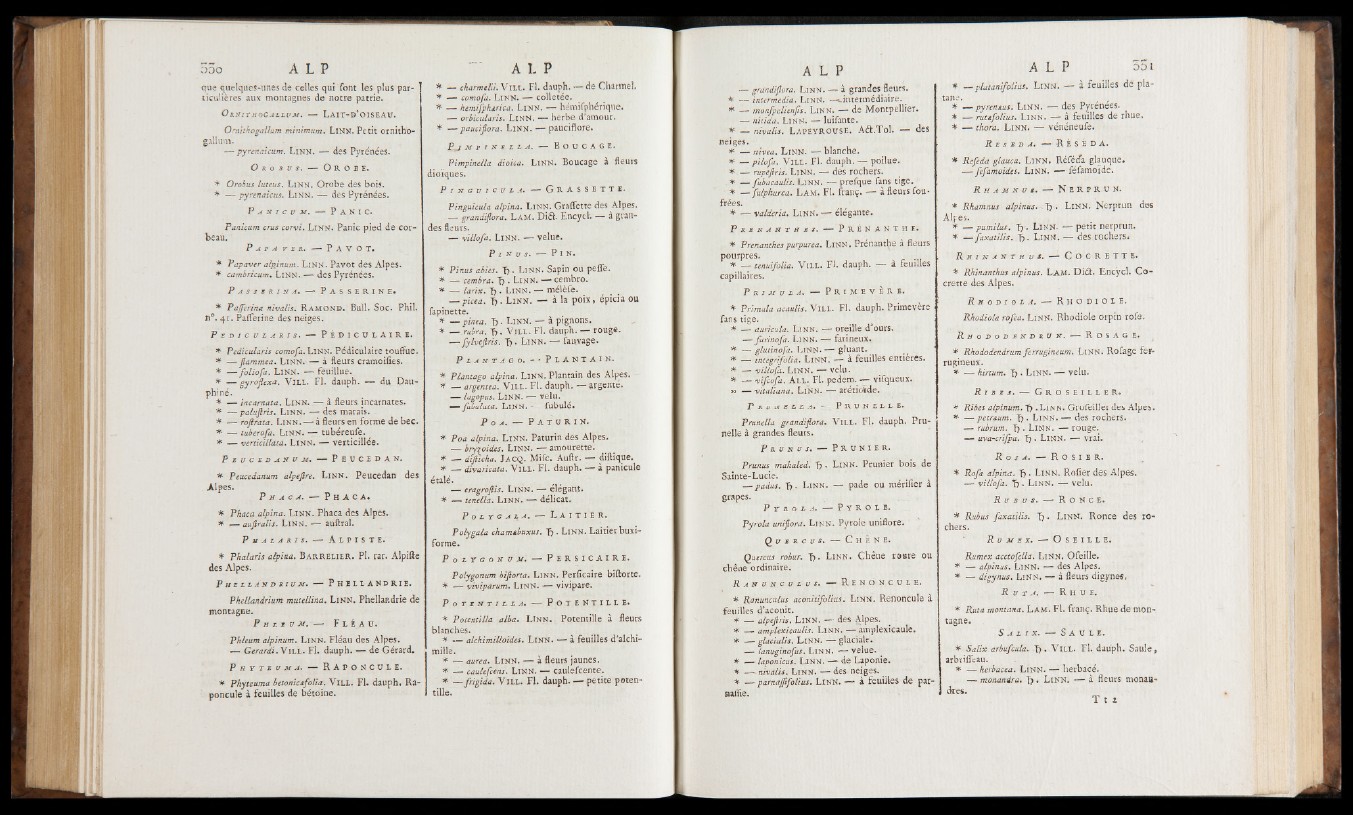 330 A L P
que quelques-unes de celles qui ſont les plus par-
ticulières aux montagnes de notre patrie.
ORNITHOGALLUM. — LAIT-D'OISEAU.
Ornithogallum minimum. LINN. Petit ornitho-
gallum.
— pyrenaicum. LINN. — des Pyrénées.
OROBUS. — OROBE.
* Orobus luteus. LINN. Orobe des bois.
* — pyrenaicus. LINN. — des Pyrénées.
PANICUM. — PANIC.
Panicum crus corvi. LINN. Panic pied de cor-
beau.
PAPAVER. — PAVOT.
* Papaver alpinum. LINN. Pavot des Alpes.
* cambricum. LINN. — des Pyrénées.
PASSERINA. — PASSERINE.
* Paſſerina nivalis. RAMOND. Bull. Soc. Phil.
n°. 41. Paſſerine des neiges.
PEDICULARIS. — PÉDICULAIRE.
* Pedicularis comoſa. LINN. Pédiculaire touffue.
* — flammea. LINN. — à fleurs cramoiſies.
* — folioſa. LINN. — feuillue.
* — gyroflexa. VILL. Fl. dauph. — du Dau-
phiné.
* — incarnata. LINN. — à fleurs incarnates.
* — paluſtris. LINN. — des marais.
* — roſtrata. LINN. — à fleurs en forme de bec.
* — tuberoſa. LINN. — tubéreuſe.
* — verticillata. LINN. — verticillée.
PEUCEDANUM. — PEUCEDAN.
* Peucedanum alpeſtre. LINN. Peucedan des
Alpes.
PHACA. — PHACA.
* Phaca alpina. LINN. Phaca des Alpes.
* — auſtralis. LINN. — auſtral.
PHALARIS. — ALPISTE.
* Phalaris alpina. BARRELIER. Pl. rar. Alpiſte
des Alpes.
PHELLANDRIUM. — PHELLANDRIE.
Phellandrium mutellina. LINN. Phellandrie de
montagne.
PHLEUM. — FLÉAU.
Phleum alpinum. LINN. Fléau des Alpes.
— Gerardi. VILL. Fl. dauph. — de Gérard.
PHYTEUMA. — RAPONCULE.
* Phyteuma betonicæfolia. VILL. Fl. dauph. Ra-
poncule à feuilles de bétoine.
A L P
* — charmelli. VILL. Fl. dauph. — de Charmel.
* — comoſa. LINN. — colletée.
* — hemiſphærica. LINN. — hémiſphérique.
— orbicularis. LINN. — herbe d'amour.
* — pauciflora. LINN. — pauciflore.
PIMPINELLA. — BOUCAGE.
Pimpinella dioica. LINN. Boucage à fleurs
dioïques.
PINGUICULA. — GRASSETTE.
Pinguicula alpina. LINN. Graſſette des Alpes.
— grandiflora. LAM. Dict. Encycl. — à gran-
des fleurs.
— villoſa. LINN. — velue.
PINUS. — PIN.
* Pinus abies. ♄. LINN. Sapin ou peſſe.
* — cembra. ♄. LINN. — cembro.
* — larix. ♄. LINN. — mélèſe.
— picea. ♄. LINN. — à la poix, épicia ou
ſapinette.
* — pinea. ♄. LINN. — à pignons.
* — rubra. ♄. VILL. Fl. dauph. — rouge.
— ſylveſtris. ♄. LINN. — ſauvage.
PLANTAGO. — PLANTAIN.
* Plantago alpina. LINN. Plantain des Alpes.
* — argentea. VILL. Fl. dauph. — argenté.
— lagopus. LINN. — velu.
— ſubulata. LINN. — ſubulé.
POA. — PATURIN.
* Poa alpina. LINN. Paturin des Alpes.
— bryzoides. LINN. — amourette.
* — diſticha. JACQ. Miſc. Auſtr. — diſtique.
* — divaricata. VILL. Fl. dauph. — à panicule
étalé.
— eragroſtis. LINN. — élégant.
* — tenella. LINN. — délicat.
POLYGALA. — LAITIER.
Polygala chamæbuxus. ♄. LINN. Laitier buxi-
forme.
POLYGONUM. — PERSICAIRE.
Polygonum biſtorta. LINN. Perſicaire biſtorte.
* — viviparum. LINN. — vivipare.
POTENTILLA. — POTENTILLE.
* Potentilla alba. LINN. Potentille à fleurs
blanches.
* — alchimilloides. LINN. — à feuilles d'alchi-
mille.
* — aurea. LINN. — à fleurs jaunes.
* — cauleſcens. LINN. — cauleſcente.
* — frigida. VILL. Fl. dauph. — petite poten-
tille.
A L P
— grandiflora. LINN. — à grandes fleurs.
* — intermedia. LINN. — intermédiaire.
* — monſpelienſis. LINN. — de Montpellier.
— nitida. LINN. — luiſante.
* — nivalis. LAPEYROUSE. Act. Tol. — des
neiges.
* — nivea. LINN. — blanche.
* — piloſa. VILL. Fl. dauph. — poilue.
* — rupeſtris. LINN. — des rochers.
* — ſubacaulis. LINN. — preſque ſans tige.
* — ſulphurea. LAM. Fl. franç. — à fleurs ſou-
frées.
* — valderia. LINN. — élégante.
PRENANTHES. — PRÉNANTHE.
* Prenanthes purpurea. LINN. Prénanthe à fleurs
pourpres.
* — tenuifolia. VILL. Fl. dauph. — à feuilles
capillaires.
PRIMULA. — PRIMEVÈRE.
* Primula acaulis. VILL. Fl. dauph. Primevère
ſans tige.
* — auricula. LINN. — oreille d'ours.
— farinoſa. LINN. — farineux.
* — glutinoſa. LINN. — gluant.
* — integrifolia. LINN. — à feuilles entières.
* — villoſa. LINN. — velu.
* — viſcoſa. ALL. Fl. pedem. — viſqueux.
» — vitaliana. LINN. — arétioïde.
PRUNELLA. — PRUNELLE.
Prunella grandiflora. VILL. Fl. dauph. Pru-
nelle à grandes fleurs.
PRUNUS. — PRUNIER.
Prunus mahaleb. ♄. LINN. Prunier bois de
Sainte-Lucie.
— padus. ♄. LINN. — pade ou mériſier à
grapes.
PYROLA. — PYROLE.
Pyrola uniflora. LINN. Pyrole uniflore.
QUERCUS. — CHÊNE.
Quercus robur. ♄. LINN. Chêne roure ou
chêne ordinaire.
RANUNCULUS. — RENONCULE.
* Ranunculus aconitifolius. LINN. Renoncule à
feuilles d'aconit.
* — alpeſtris. LINN. — des Alpes.
* — amplexicaulis. LINN. — amplexicaule.
* — glacialis. LINN. — glaciale.
— lanuginoſus. LINN. — velue.
* — laponicus. LINN. — de Laponie.
* — nivalis. LINN. — des neiges.
* — parnaſſifolius. LINN. — à feuilles de par-
naſſie.
A L P 331
* — platanifolius. LINN. — à feuilles de pla-
tane.
* — pyrenæus. LINN. — des Pyrénées.
* — rutæfolius. LINN. — à feuilles de rhue.
* — thora. LINN. — vénéneuſe.
RESEDA. — RESEDA.
* Reſeda glauca. LINN. Réſéda glauque.
— ſeſamoides. LINN. — ſéſamoïde.
RHAMNUS. — NERPRUN.
* Rhamnus alpinus. ♄. LINN. Nerprun des
Alpes.
* — pumilus. ♄. LINN. — petit nerprun.
* — ſaxatilis. ♄. LINN. — des rochers.
RHINANTHUS. — COCRETTE.
* Rhinanthus alpinus. LAM. Dict. Encycl. Co-
crette des Alpes.
RHODIOLA. — RHODIOLE.
Rhodiola roſea. LINN. Rhodiole orpin roſe.
RHODODENDRUM. — ROSAGE.
* Rhododendrum ferrugineum. LINN. Roſage fer-
rugineux.
* — hirtum. ♄. LINN. — velu.
RIBES. — GROSEILLER.
* Ribes alpinum. ♄. LINN. Groſeiller des Alpes.
* — petræum. ♄. LINN. — des rochers.
— rubrum. ♄. LINN. — rouge.
— uva-criſpa. ♄. LINN. — vrai.
ROSA. — ROSIER.
* Roſa alpina. ♄. LINN. Roſier des Alpes.
— villoſa. ♄. LINN. — velu.
RUBUS. — RONCE.
* Rubus ſaxatilis. ♄. LINN. Ronce des ro-
chers.
RUMEX. — OSEILLE.
Rumex acetoſella. LINN. Oſeille.
* — alpinus. LINN. — des Alpes.
* — digynus. LINN. — à fleurs digynes.
RUTA. — RHUE.
* Ruta montana. LAM. Fl. franç. Rhue de mon-
tagne.
SALIX. — SAULE.
* Salix arbuſcula. ♄. VILL. Fl. dauph. Saule,
arbriſſeau.
* — herbacea. LINN. — herbacé.
— monandra. ♄. LINN. — à fleurs monan-
dres.
T t 2